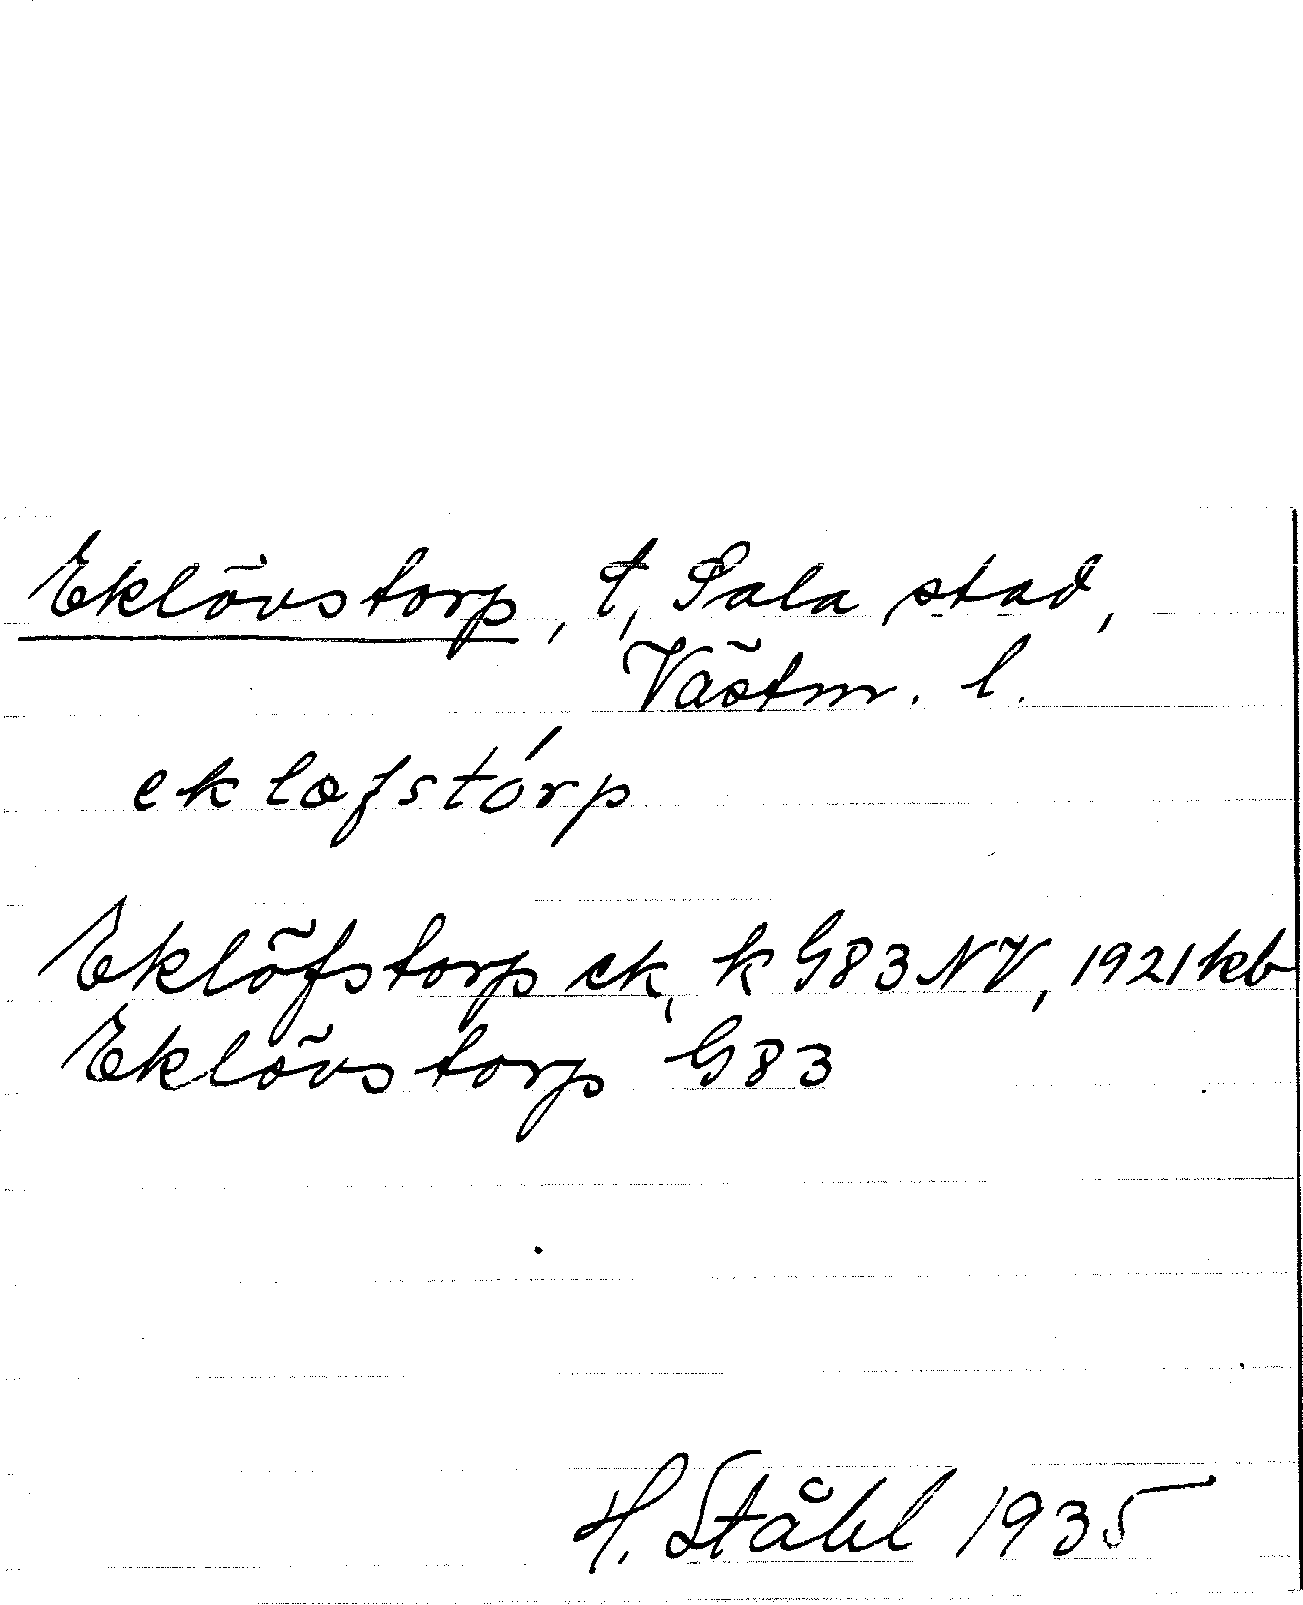 Eklövstorp, t, Sala stad,
Västm. l.
eklofstórp
Eklöfstorp ek, k G83 NV, 1921 kb
Eklövstorp G83
H. Ståhl 1935